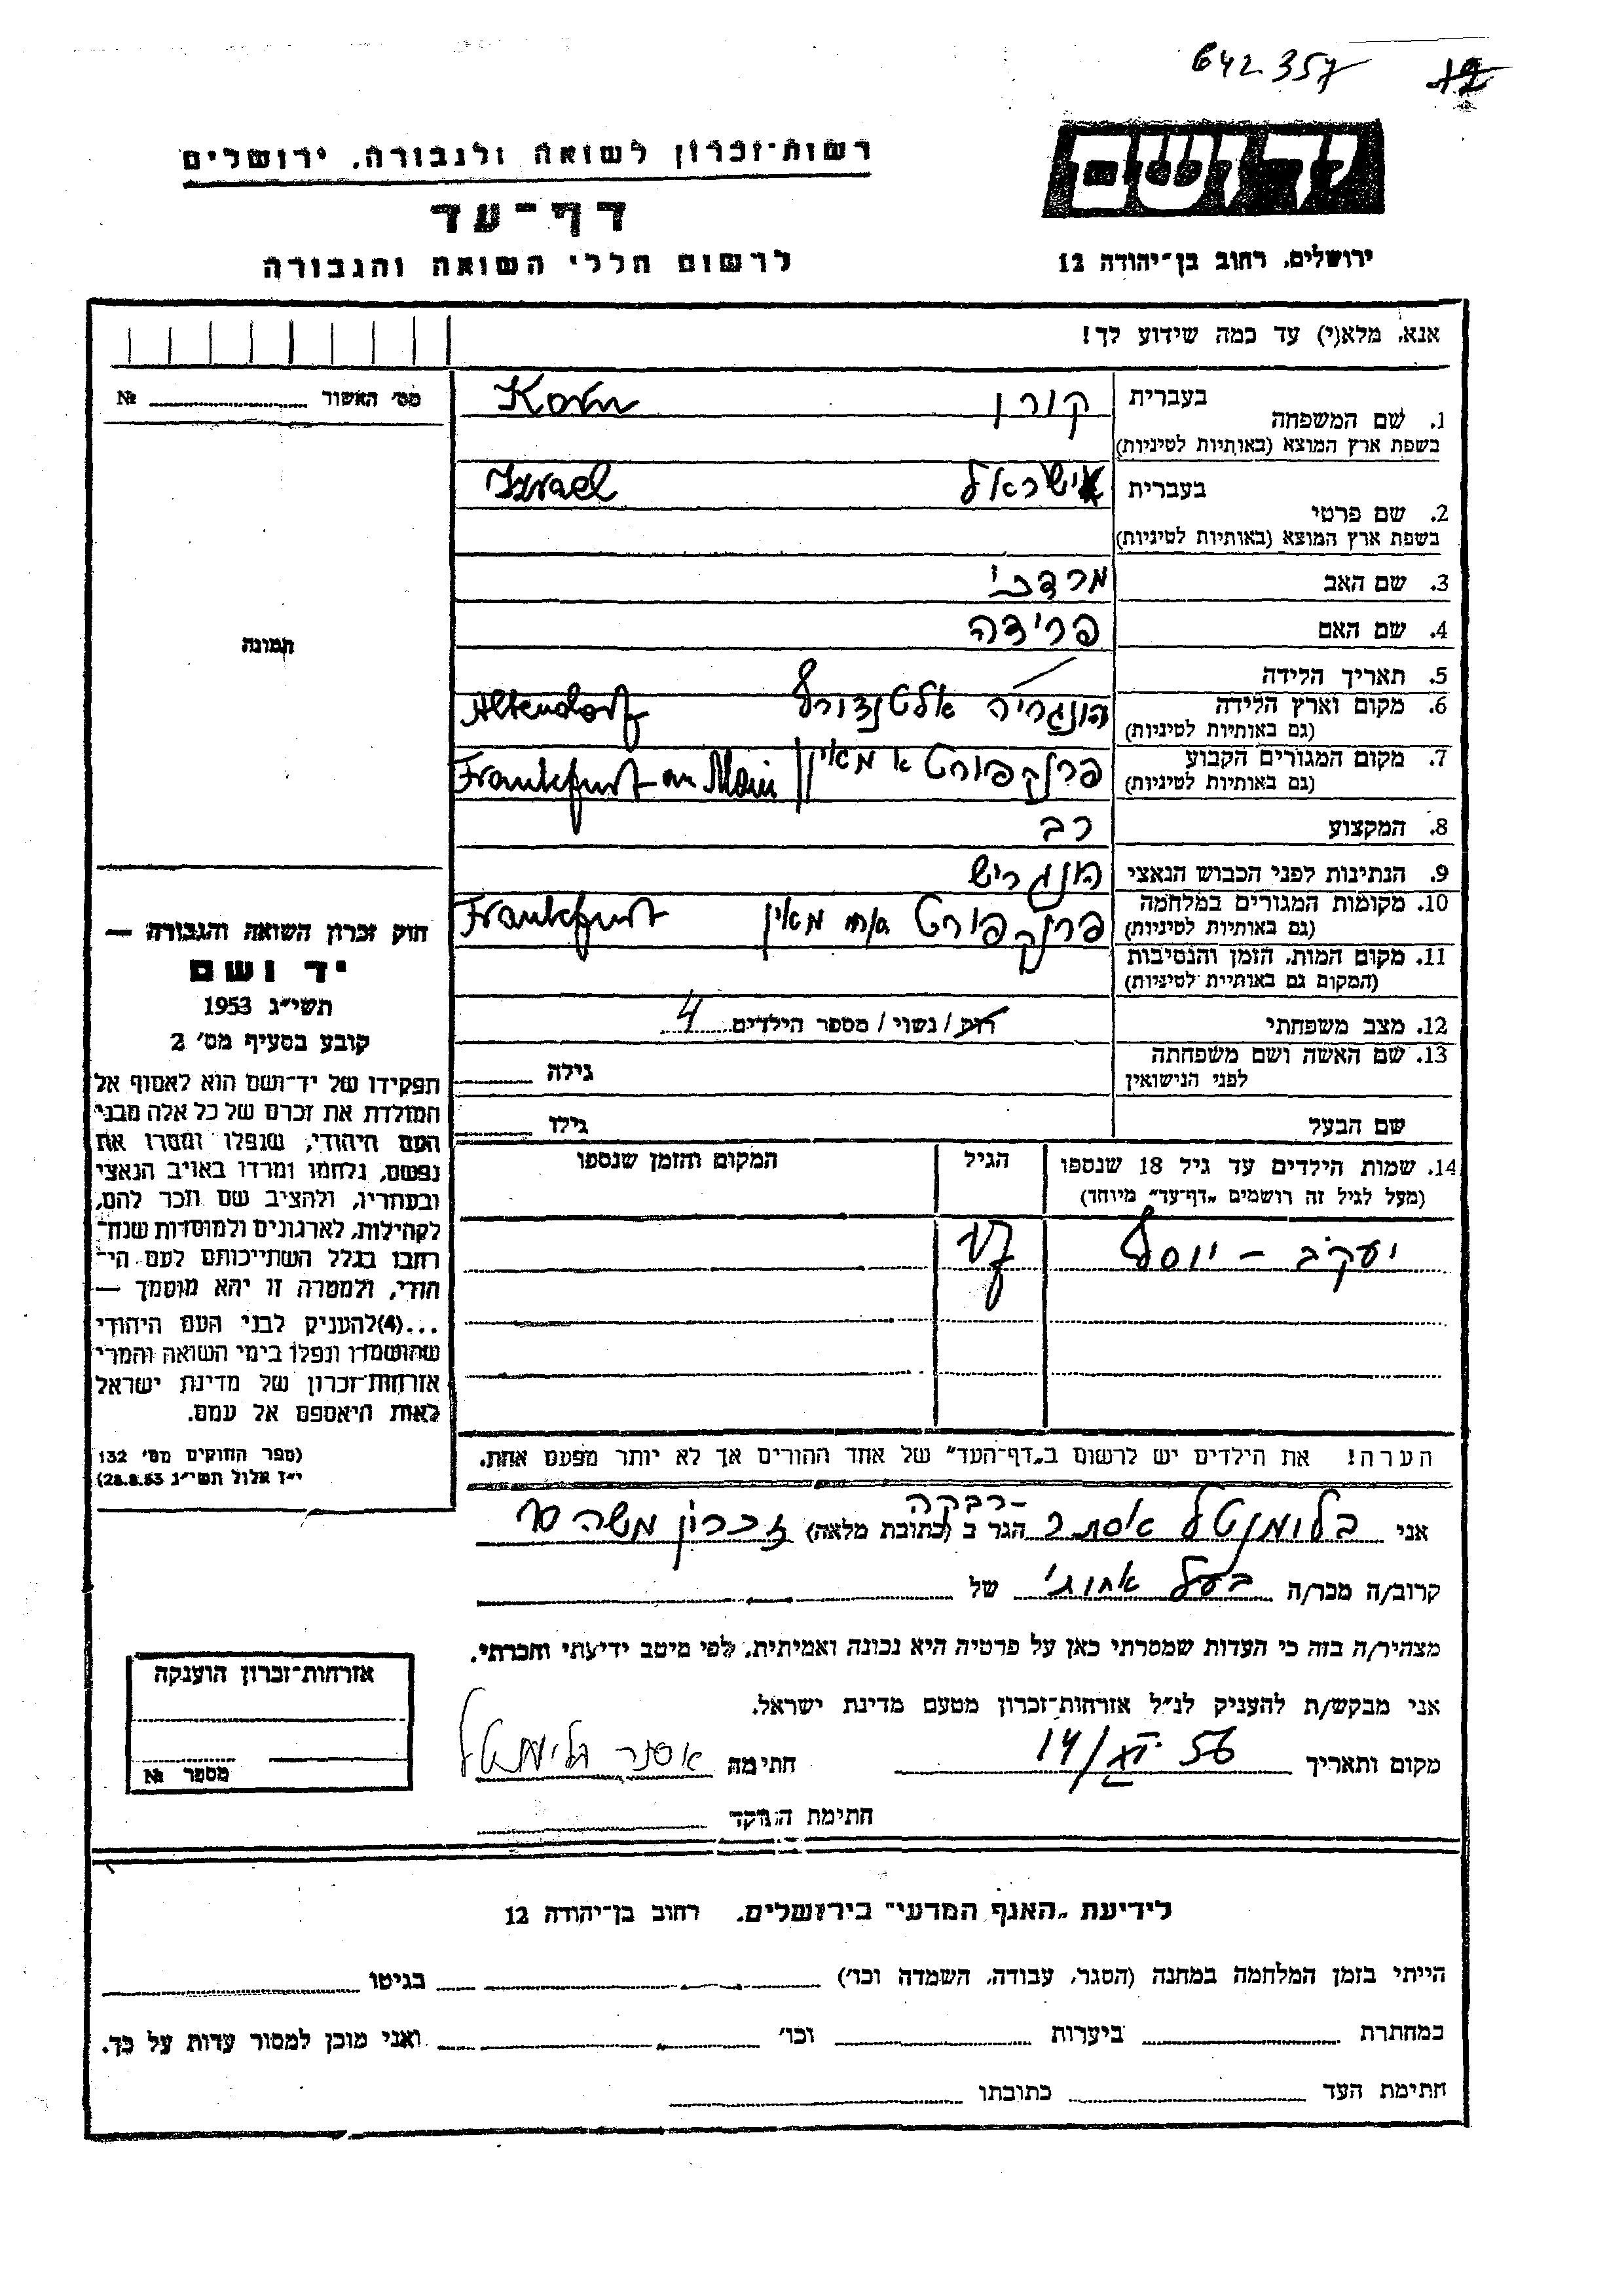 642357 12
יד ושם
רשות-זכרון לשואה ולגבורה, ירושלים
דף-עד
לרשום חללי השואה והגבורה
ירושלים, רחוב בן-יהודה 12
אנא, מלא(י) עד כמה שידוע לך!
מס' האשור №
1. שם המשפחה בעברית קורן Korn
בשפת ארץ המוצא (באותיות לטיניות)
2. שם פרטי בעברית ישראל Izrael
בשפת ארץ המוצא (באותיות לטיניות)
3. שם האב מרדכי
4. שם האם פרידה
תמונה
5. תאריך הלידה
6. מקום וארץ הלידה הונגריה אלטנדורף Altendorf
(גם באותיות לטיניות)
7. מקום המגורים הקבוע פרנקפורט א מאין Frankfurt am Main
(גם באותיות לטיניות)
8. המקצוע רב
9. הנתינות לפני הכבוש הנאצי הונגריש
10. מקומות המגורים במלחמה פרנקפורט מאין Frankfurt
(גם באותיות לטיניות)
11. מקום המות, הזמן והנסיבות
(המקום גם באותיית לטיניות)
12. מצב משפחתי רווק / נשוי / מספר הילדים 4
13. שם האשה ושם משפחתה גילה
לפני הנישואין
שם הבעל גילו
14. שמות הילדים עד גיל 18 שנספו הגיל המקום והזמן שנספו
(מעל לגיל זה רושמים "דף-עד" מיוחד)
יעקב - יוסף
הערה! את הילדים יש לרשום ב"דף-העד" של אחד ההורים אך לא יותר מפעם אחת.
חוק זכרון השואה והגבורה —
יד ושם
תשי"ג 1953
קובע בסעיף מס' 2
תפקידו של יד-ושם הוא לאסוף אל
המולדת את זכרם של כל אלה מבני
העם היהודי, שנפלו ומסרו את
נפשם, נלחמו ומרדו באויב הנאצי
ובעוזריו, ולהציב שם וזכר להם,
לקהילות, לארגונים ולמוסדות שנח-
רבו בגלל השתייכותם לעם הי-
הודי, ולמטרה זו יהא מוסמך —
...(4) להעניק לבני העם היהודי
שהושמדו ונפלו בימי השואה והמרי
אזרחות-זכרון של מדינת ישראל
לאות היאספם אל עמם.
(ספר החוקים מס' 132
י"ז אלול תשי"ג 28.8.53)
-רבקה
אני בלומנטל אסתר הגר ב (כתובת מלאה) זכרון משה
קרוב/ה מכר/ה בעל אחותי של
מצהיר/ה בזה כי העדות שמסרתי כאן על פרטיה היא נכונה ואמיתית, לפי מיטב ידיעתי והכרתי.
אני מבקש/ת להעניק לנ"ל אזרחות-זכרון מטעם מדינת ישראל.
מקום ותאריך 14/XI 56 חתימה אסתר בלומנטל
חתימת הפוקד
אזרחות-זכרון הוענקה
מספר №
לידיעת "האגף המדעי" בירושלים, רחוב בן-יהודה 12
הייתי בזמן המלחמה במחנה (הסגר, עבודה, השמדה וכו') בגיטו
במחתרת ביערות וכו' ואני מוכן למסור עדות על כך.
חתימת העד כתובתו